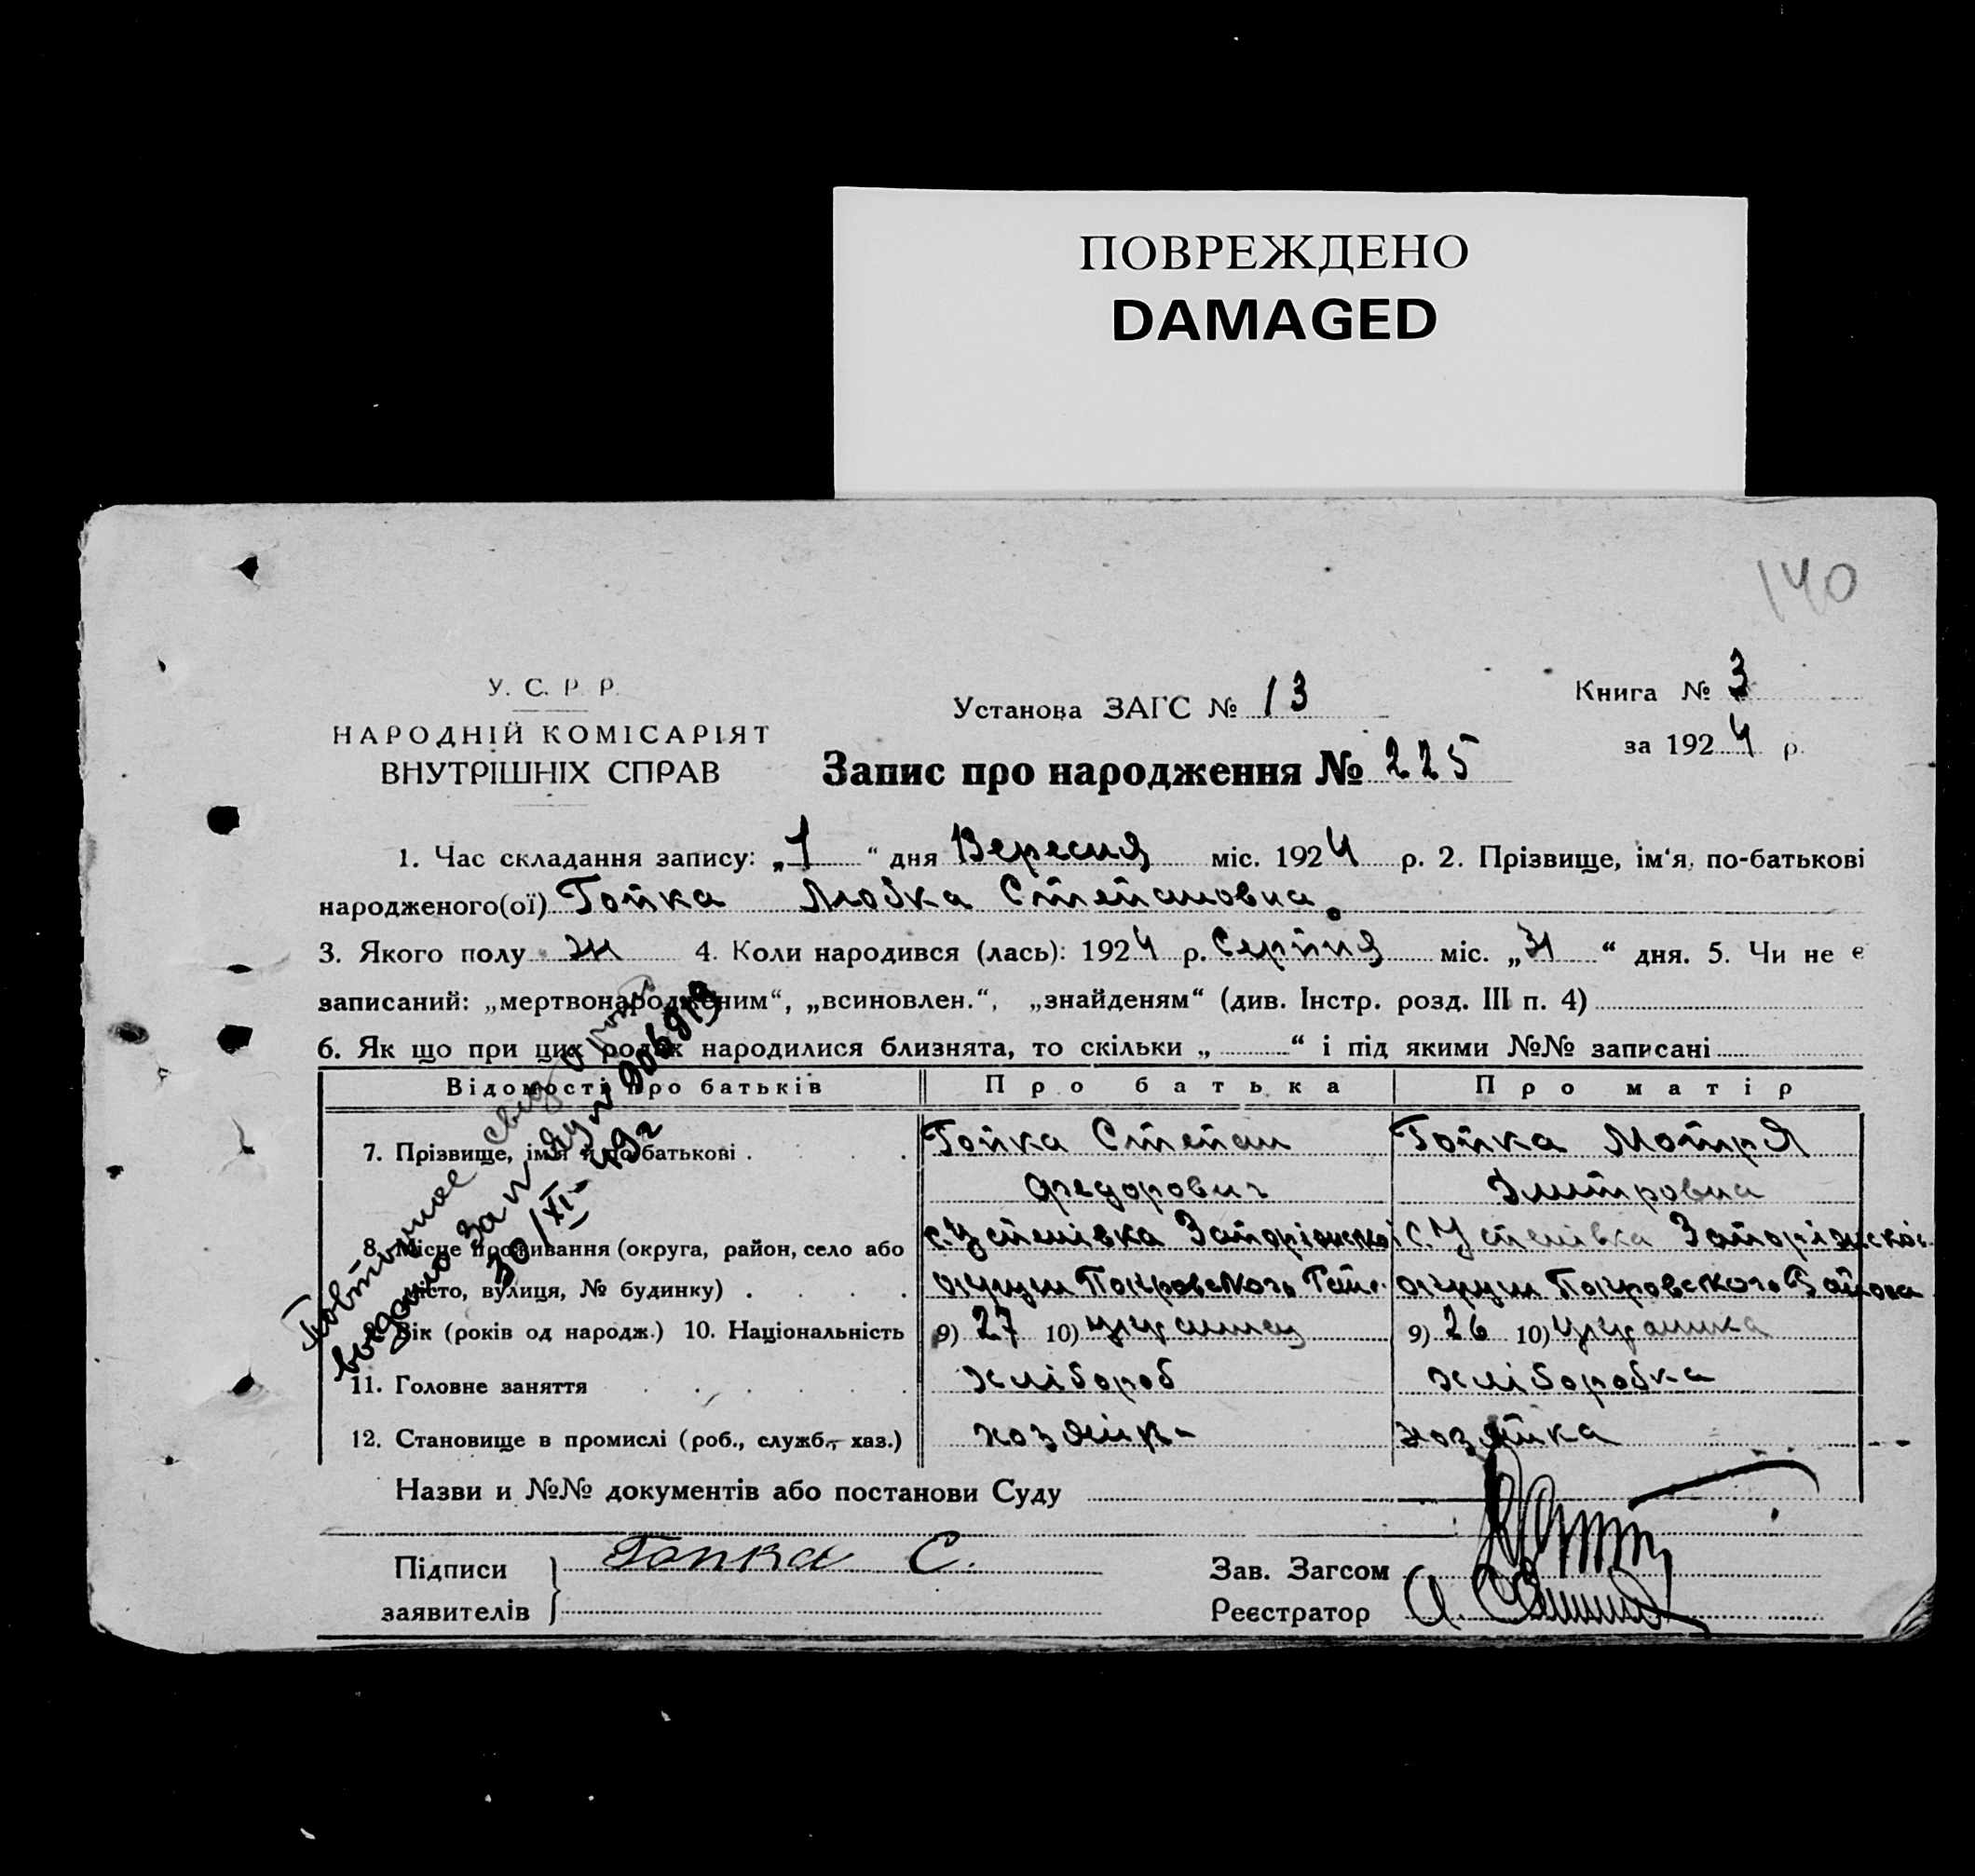 ПОВРЕЖДЕНО
DAMAGED
140
У. С. Р. Р.
НАРОДНІЙ КОМІСАРІЯТ
ВНУТРІШНІХ СПРАВ
Установа ЗАГС № 13
Книга № 3
за 1924 р.
Запис про народження № 225
1. Час складання запису: „1“ дня Вересня міс. 1924 р. 2. Прізвище, ім‘я, по-батькові
народженого(ої) Гопка Любка Степановна.
3. Якого полу ж 4. Коли народився (лась): 1924 р. Серпня міс. „31“ дня. 5. Чи не є
записаний: „мертвонародженим“, „всиновлен.“, „знайденям“ (див. Інстр. розд. III п. 4)
6. Як що при цих родах народилися близнята, то скільки „ “ і під якими №№ записані
Відомості про батьків Про батька Про матір
7. Прізвище, ім'я й по батькові . Гопка Степан Гопка Мотря
Федорович Дмитровна
8. Місце проживання (округа, район, село або с. Успенівка Запоріжскоі с. Успенівка Запоріжскоі
місто, вулиця, № будинку) . округи Покровского округи Покровского Района
9. Вік (років од народж.) 10. Національність 9) 27 10) 9) 26 10)
11. Головне заняття хлібороб хліборобка
12. Становище в промислі (роб., служб., хаз.) хозяїн хозяйка
Назви и №№ документів або постанови Суду
Підписи Гопка С.
заявителів
Зав. Загсом
Реєстратор
Повторное свид. о рожд.
выдано
30/XI-